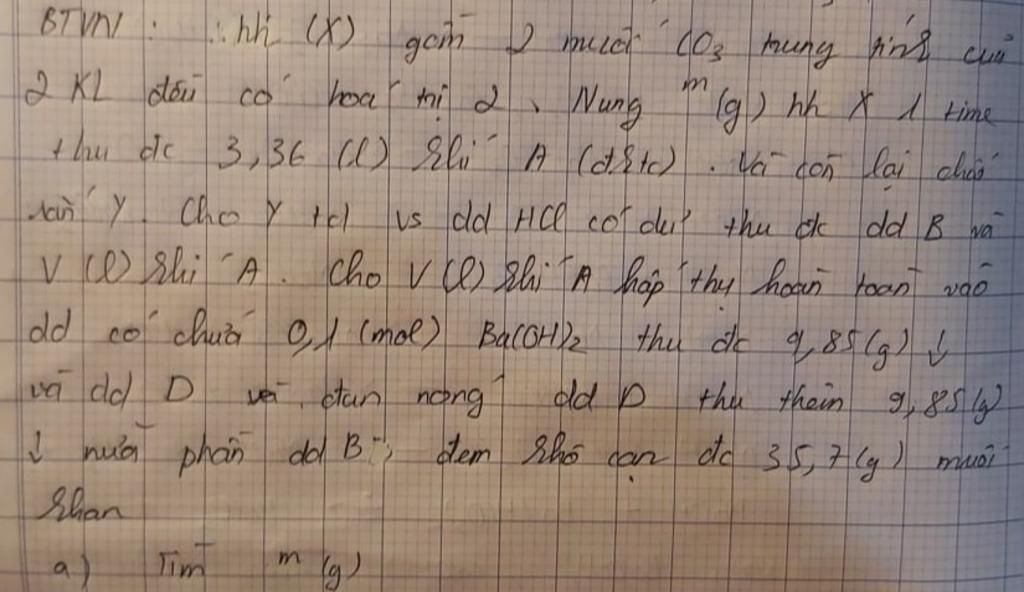 BTVN : hh (X) gồm 2 muối CO3 trung tính của
2 KL đều có hoá trị 2, Nung m (g) hh X 1 time
thu đc 3,36 (l) khí A (đktc). Và còn lại chất
rắn Y. Cho Y td vs dd HCl có dư thu đc dd B và
V (l) khí A. Cho V (l) khí A hấp thụ hoàn toàn vào
dd có chứa 0,1 (mol) Ba(OH)2 thu đc 9,85 (g) ↓
và dd D đun nóng dd D thu thêm 9,85 (g)
↓ nửa phần dd B đem khô cạn đc 35,7 (g) muối
khan
a) Tìm m (g)